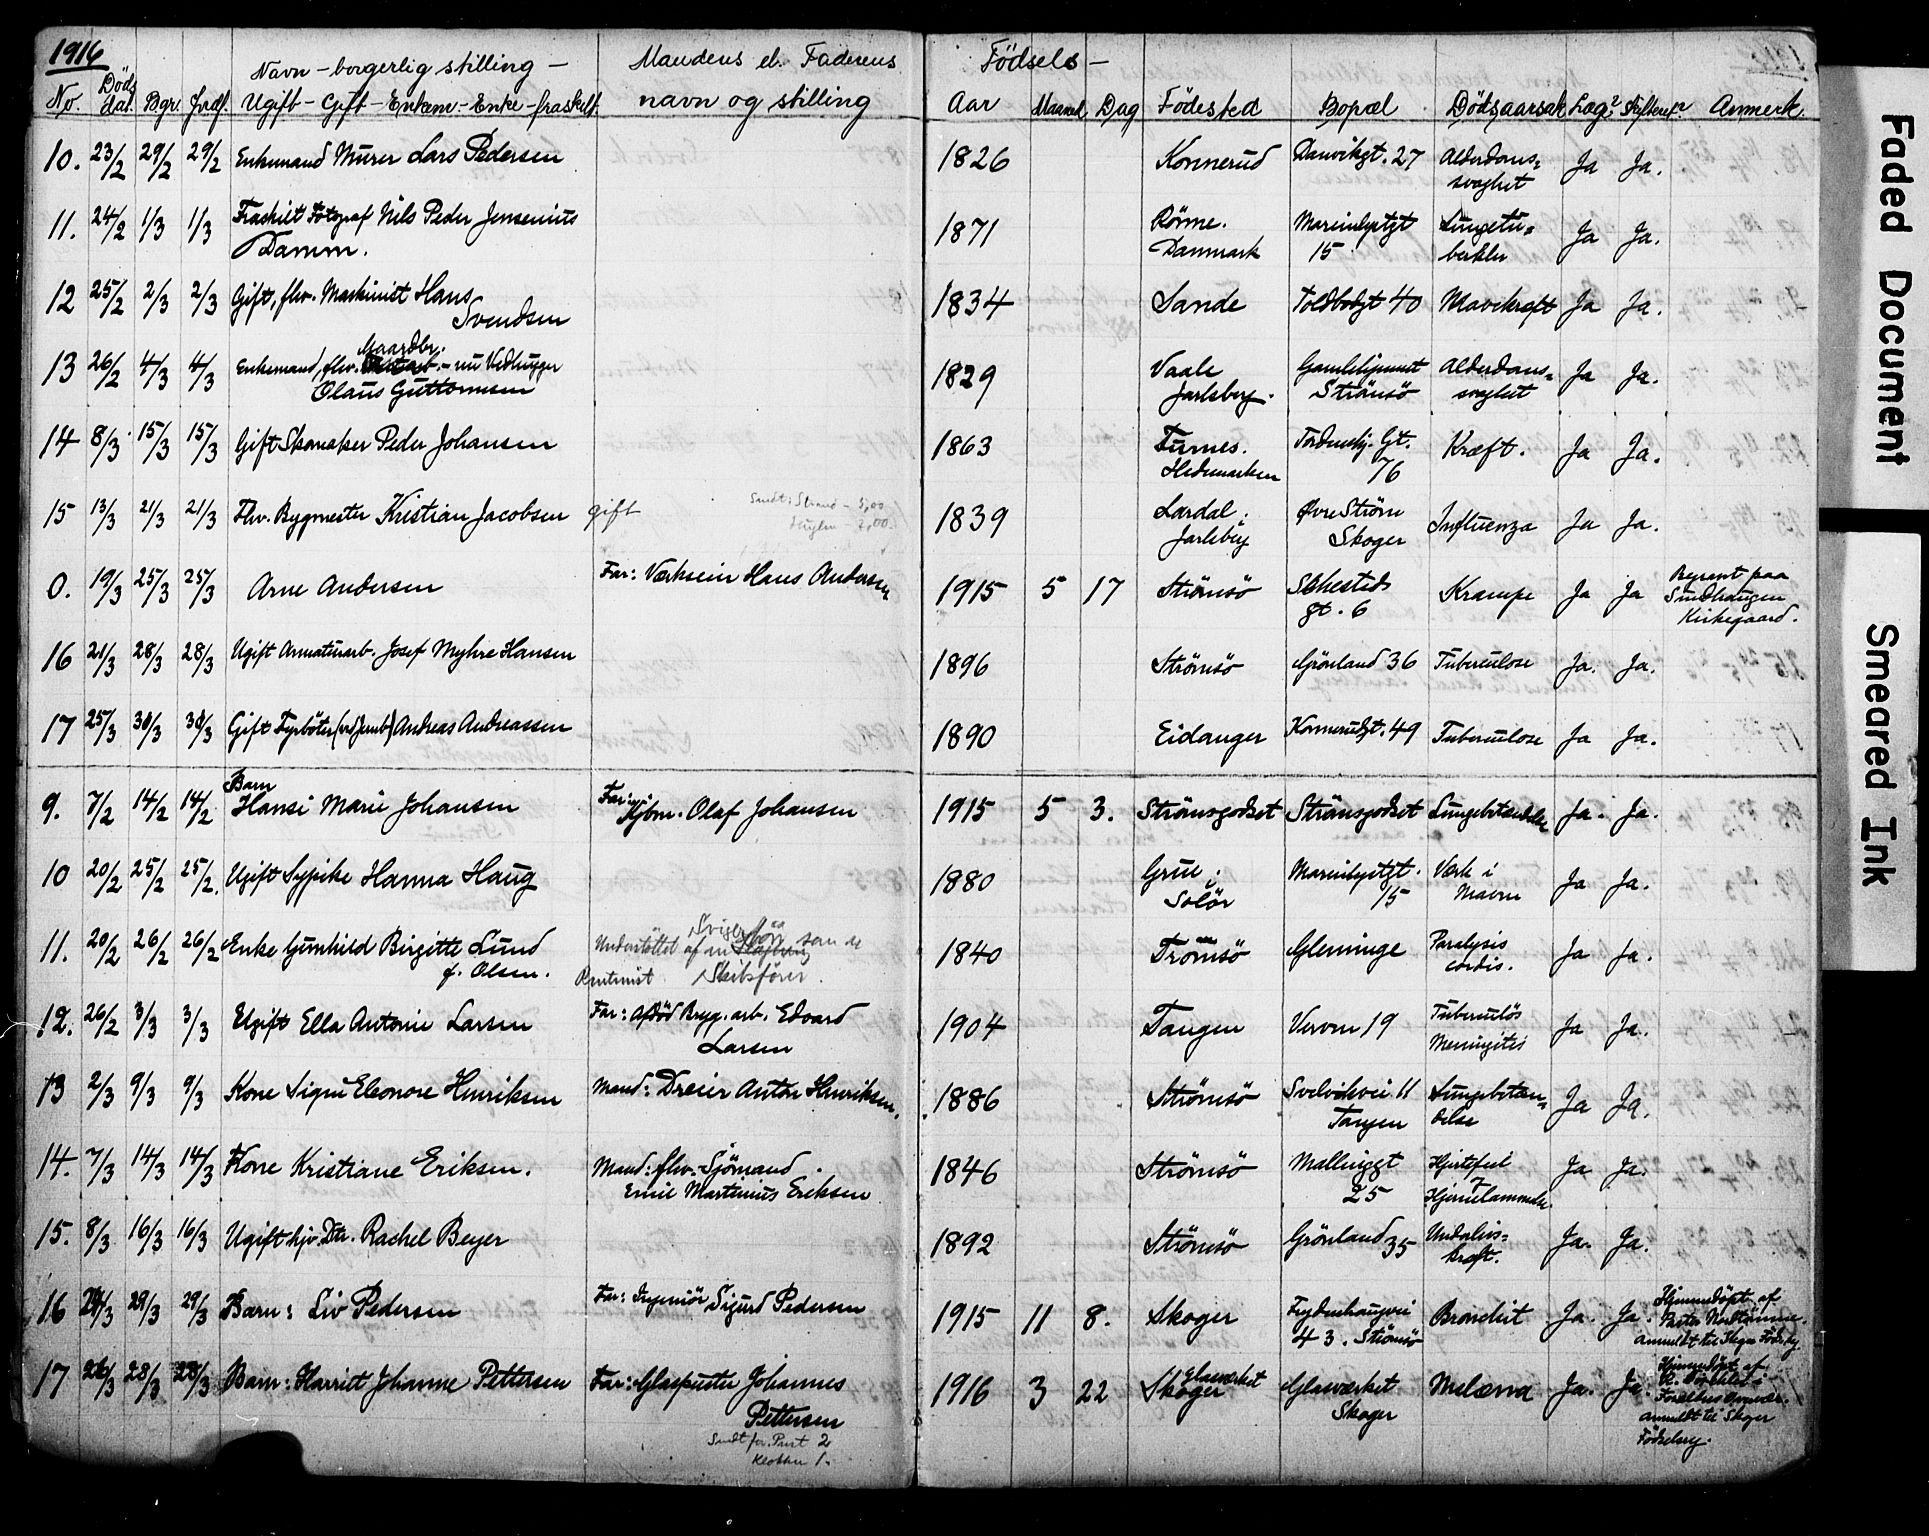 1916
Navn – borgerlig stilling – Mandens el. Faderens Födsels –
No. Döds dat. Bgr. Jordf. Ugift – Gift – Enkem – Enke – fraskilt. navn og stilling Aar Maaned Dag Födested Bopæl Dödsaarsak Læge? Skifteret? Anmerk.
10. 23/2 29/2 29/2 Enkemand Murer Lars Pedersen 1826 Konnerud Danvikgt. 27 Alderdoms= Ja Ja.
svaghet
11. 24/2 1/3 1/3 Fraskilt Fotograf Nils Peder Jensenius 1871 Rönne. Marienlystgt Lungetu= Ja Ja.
Damm. Danmark 15 berkler
12 25/2 2/3 2/3 Gift, fhv. Maskinist Hans 1834 Sande Toldbodgt 40 Mavekræft Ja Ja.
Svendsen
Maardbr.
13 26/2 4/3 4/3 Enkemand, fhv. – nu Vedhugger 1829 Vaale Alderdoms= Ja Ja.
Olaus Guttormsen Jarlsberg. Strömsö svaghet
14 8/3 15/3 15/3 Gift Skomaker Peder Johansen 1863 Furnes. Tordenskj. Gt. Kræft. Ja Ja.
Hedemarken 76
15 13/3 21/3 21/3 Fhv. Bygmester Kristian Jacobsen gift Sendt: Strand – 5,00 1839 Lardal. Øvre Ström Influenza Ja Ja.
– 2,00. Jarlsberg Skoger
0. 19/3 25/3 25/3 Arne Andersen Far: Værkseier Hans Andersen 1915 5 17 Strömsö Sehesteds Krampe Ja Ja Begravet paa
gt. 6 Sundhaugen
Kirkegaard.
16 21/3 28/3 28/3 Ugift Armaturarb. Josef Myhre Hansen 1896 Strömsö Grönland 36 Tuberculose Ja. Ja.
17 25/3 30/3 30/3 Gift Fyrböter (ved Jernb) Andreas Andreassen 1890 Eidanger Konnerudgt. 49 Tuberculose Ja Ja.
Barn
9. 7/2 14/2 14/2 Hansi Marie Johansen Far: Olaf Johansen 1915 5 3. Strömsgodset Strömsgodset Lungebetændelse Ja. Ja.
10 20/2 25/2 25/2. Ugift Sypike Hanna Haug 1880 Grue i Marienlystgt. Værk i Ja Ja.
Solör 15 Maven
Svigersön
11. 20/2 26/2 26/2 Enke Gunhild Birgitte Lund Understöttet af en som er 1840 Tromsö Glemminge Paralysis Ja Ja.
f. Olsen. Skibsförer. cordis.
12. 26/2 3/3 3/3 Ugift Ella Antonie Larsen Far: Afdöd Bryg. arb. Edvard 1904 Tangen Verven 19 Tuberculös Ja Ja.
Larsen Meningitis
13 2/3 9/3 9/3 Kone Signe Eleonore Henriksen Mand: Dreier Anton Henriksen. 1886 Strömsö Svelvikvei 11 Lungebetæn= Ja Ja.
Tangen delse
14. 7/3 14/3 14/3 Kone Kristiane Eriksen. Mand: fhv. Sjömand 1846 Strömsö Mallinggt Hjertefeil Ja Ja.
Emil Martinius Eriksen 25 Hjernelammelse
15. 8/3 16/3 16/3 Ugift hjv. Dtr. Rachel Beyer 1892 Strömsö Grönland 35 Underlivs= Ja. Ja.
kræft.
16 24/3 29/3 29/3 Barn: Liv Pedersen Far: Ingeniör Sigurd Pedersen 1915 11 8. Skoger Frydenhaugvei Bronchit Ja. Ja. Hjemmedöpt af
43. Strömsö
anmeldt til Skoger Födselsreg
17 26/3 28/3 28/3 Barn: Harriet Johanne Pettersen Far: Glaspuster Johannes 1916 3 22 Skoger Glasværket Glasværket Melæna Ja. Ja. Hjemmedöpt af
Pettersen Skoger
Sendt for Prest 2 anmeldt til Skoger
Klokker 1. Födselsreg.
Faded Document
Smeared Ink